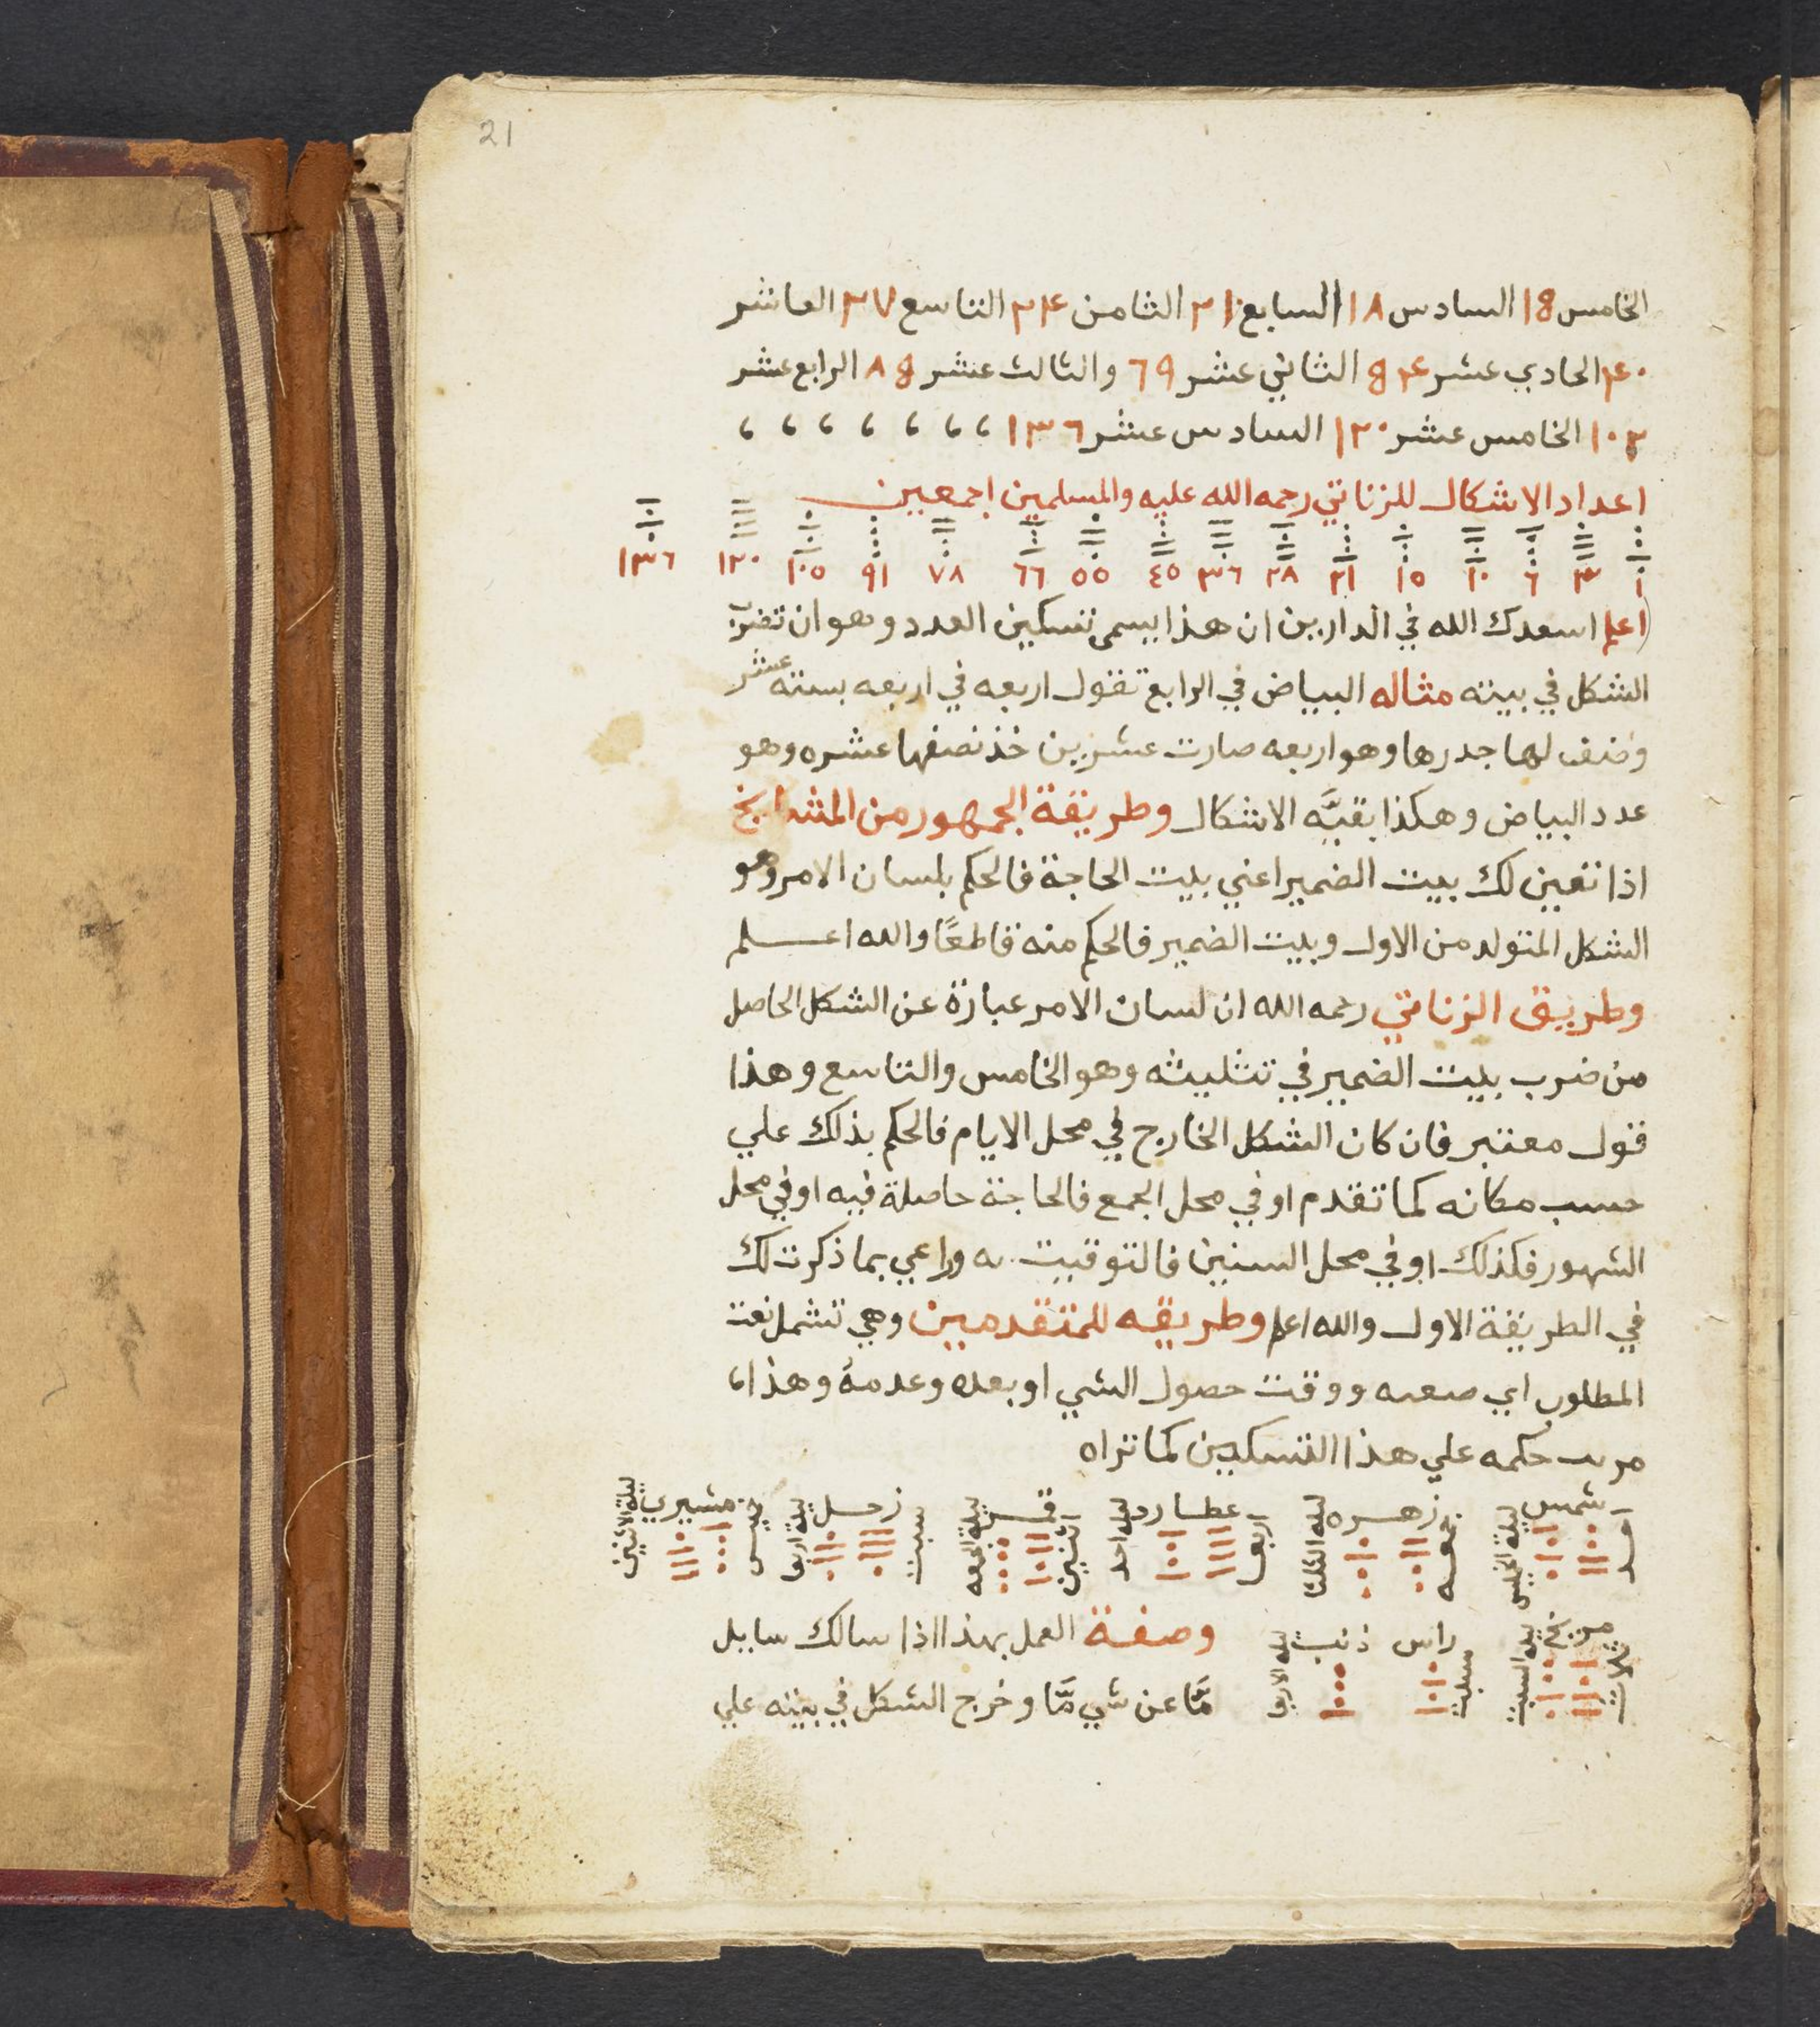 21
الخامس 18 السادس ١٨ السابع ٢١ الثامن ٢٤ التاسع ٢٧ العاشر
٤٠ الحادي عشر ٤ 8 الثاني عشر ٦9 والثالث عشر 8 ٨ الرابع عشر
١٠٢ الخامس عشر ١٢٠ السادس عشر ١٣٦ ، ، ، ، ، ، ،
اعداد الاشكال للزناتي رحمه الله عليه والمسلمين اجمعين
١ ٣ ٦ ١٠ ١٥ ٢١ ٢٨ ٣٦ ٤٥ ٥٥ ٦٦ ٧٨ ٩١ ١٠٥ ١٢٠ ١٣٦
اعلم اسعدك الله في الدارين ان هذا يسمى تسكين العدد وهو ان تضرب
الشكل في بيته مثاله البياض في الرابع تقول اربعه في اربعه بسته عشر
وضف لها جدرها وهو اربعه صارت عشرين خذ نصفها عشره وهو
عدد البياض وهكذا بقيَّه الاشكال وطريقة الجمهور من المشايخ
اذا تعين لك بيت الضمير اعني بيت الحاجة فالحكم بلسان الامر وهو
الشكل المتولد من الاول وبيت الضمير فالحكم منه قاطعًا والله اعلم
وطريق الزناتي رحمه الله ان لسان الامر عبارة عن الشكل الحاصل
من ضرب بيت الضمير في تثليثه وهو الخامس والتاسع وهذا
قول معتبر فان كان الشكل الخارج في محل الايام فالحكم بذلك علي
حسب مكانه كما تقدم او في محل الجمع فالحاجة حاصلة فيه او في محل
الشهور فكذلك او في محل السنين فالتوقيت به وراعي بما ذكرت لك
في الطريقة الاول والله اعلم وطريقه للمتقدمين وهي تشمل نعت
المطلوب اي ووقت حصول الشي او بعده وعدمهُ وهذا،
حكمه علي هذا التسكين كما تراه
شمس زهره عطارد قمر زحل مشيري
احد ليلة الخميس جمعه ليلة الثلثا اربعا ليلة احد اثنين ليلة الجمعه سبت ليلة اربع خميس ليلة الاثنين
مريخ راس ذنب وصفة العمل بهذا اذا سالك سايل
ثلاث ليلة السبت سبت
مَّا عن شي مَّا وخرج الشكل في بيته علي